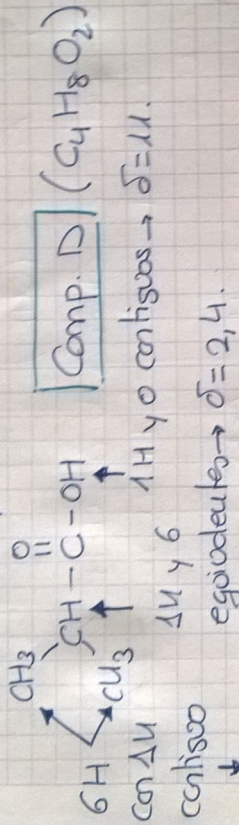 O
CH3 ||
CH – C – OH  Comp. D (C4H8O2)
CH3
6H
con 1H
contiguo
1H y 6
equivalentes → δ=2,4.
1H y 0 contiguos → δ=11.